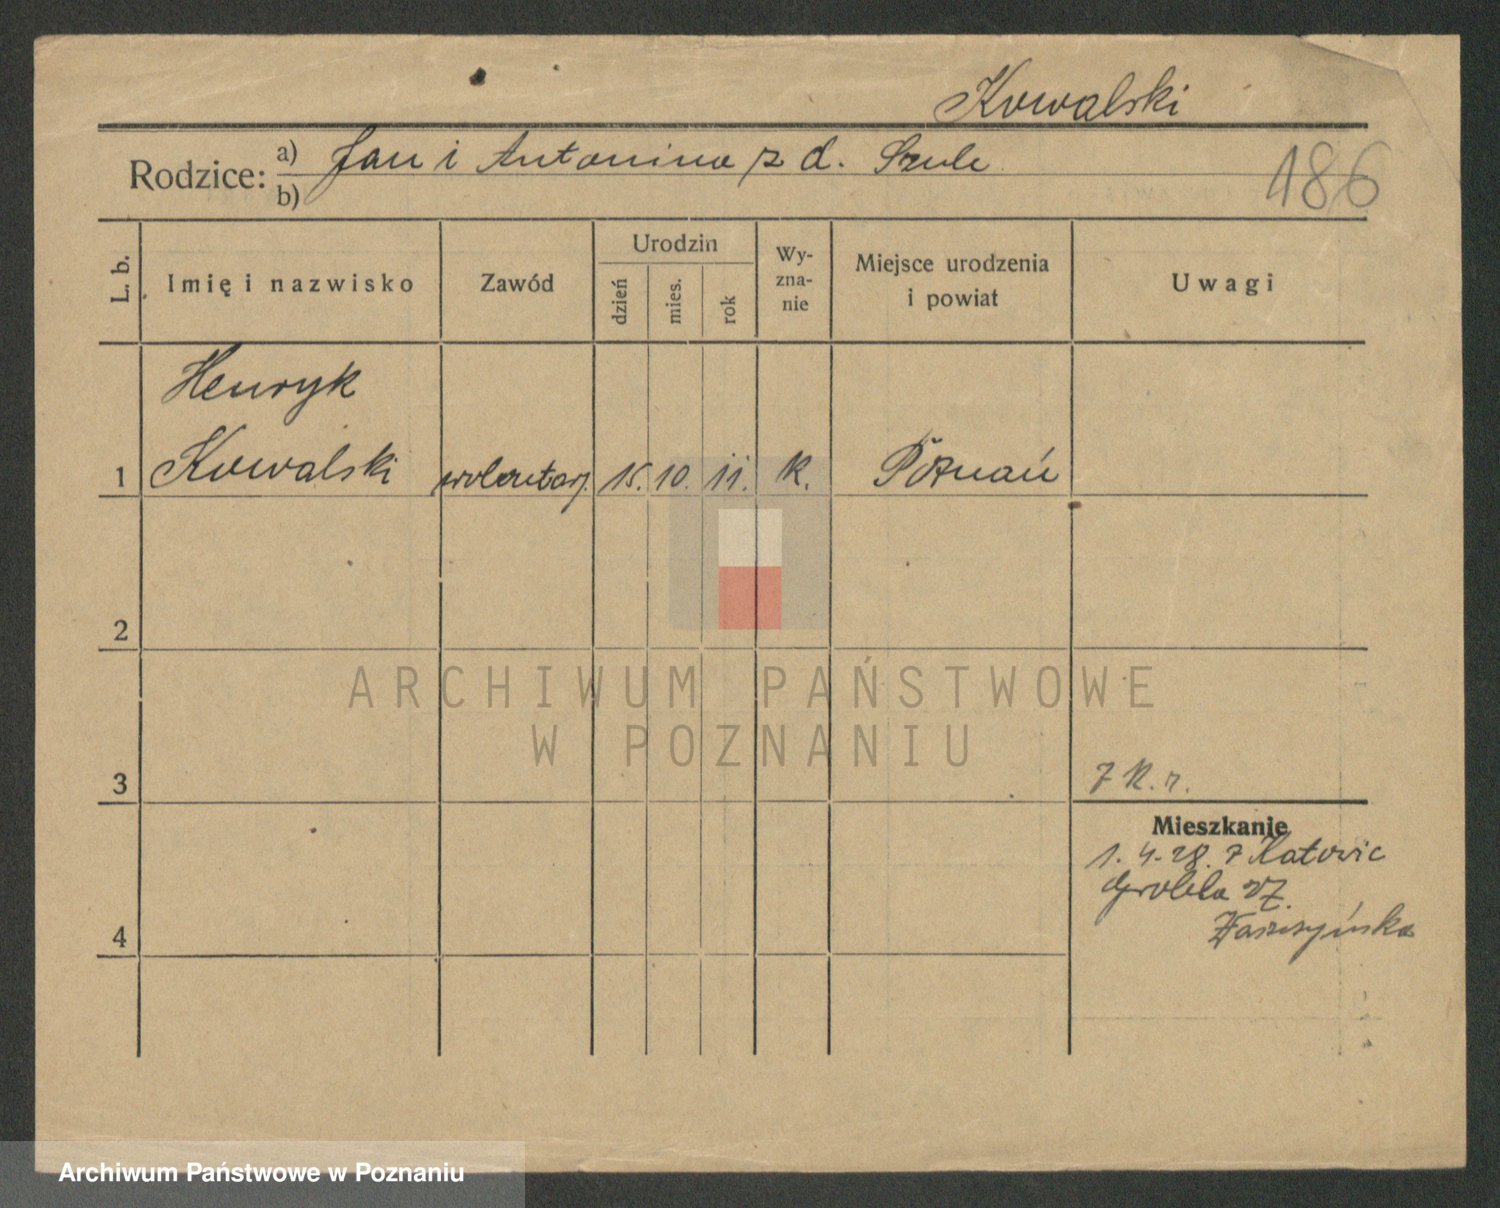 Kowalski
Rodzice: a) Jan i Antonina z d. Szulc
b)
186
L. b.
Imię i nazwisko
Zawód
Urodzin
dzień
mies.
rok
Wy-
zna-
nie
Miejsce urodzenia
i powiat
Uwagi
Henryk
1 Kowalski wolontarj. 15. 10. 11. K. Poznań
2
ARCHIWUM PAŃSTWOWE
W POZNANIU
3
Mieszkanie
1. 4. 28. z Katowic
Grobla 27.
4
Archiwum Państwowe w Poznaniu